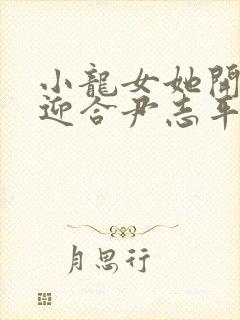 小龍女她開
迎合尹志平
月思行